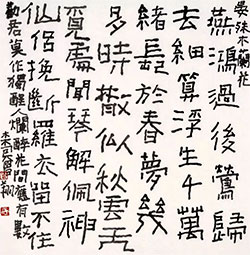 晏殊木蘭花
燕鴻過後鶯歸
去細算浮生千萬
緒長於春夢幾
多時散似秋雲无
覓處聞琴解佩神
仙侶挽斷羅衣留不住
勸君莫作獨醒爛醉花間應有數